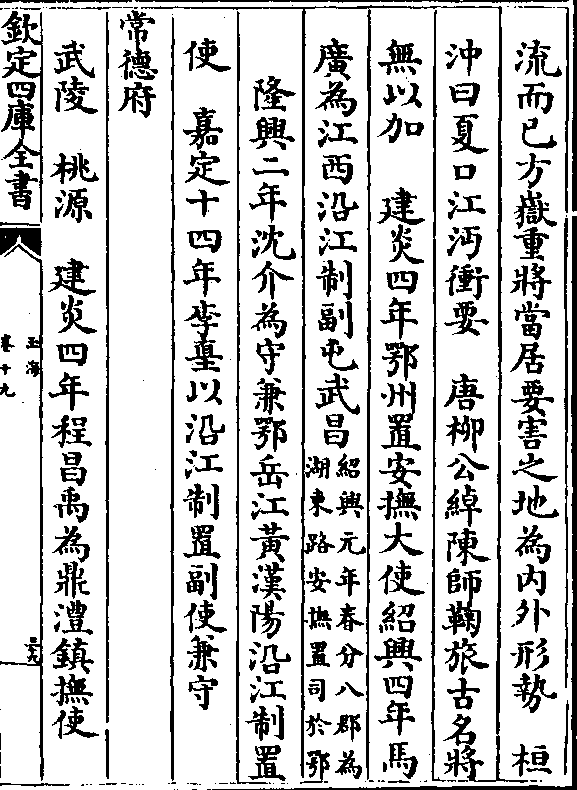 流而已方嶽重將當居要害之地為内外形勢　桓
沖曰夏口江沔衝要　唐柳公綽陳師鞠旅古名將
無以加　建炎四年鄂州置安撫大使紹興四年馬
廣為江西沿江制副屯武昌紹興元年春分八郡為
湖東路安撫置司於鄂
隆興二年沈介為守兼鄂岳江黄漢陽沿江制置
使　嘉定十四年李𡌴以沿江制置副使兼守
常德府
武陵　桃源　建炎四年程昌禹為鼎澧鎮撫使
欽定四庫全書
玉海
卷十九